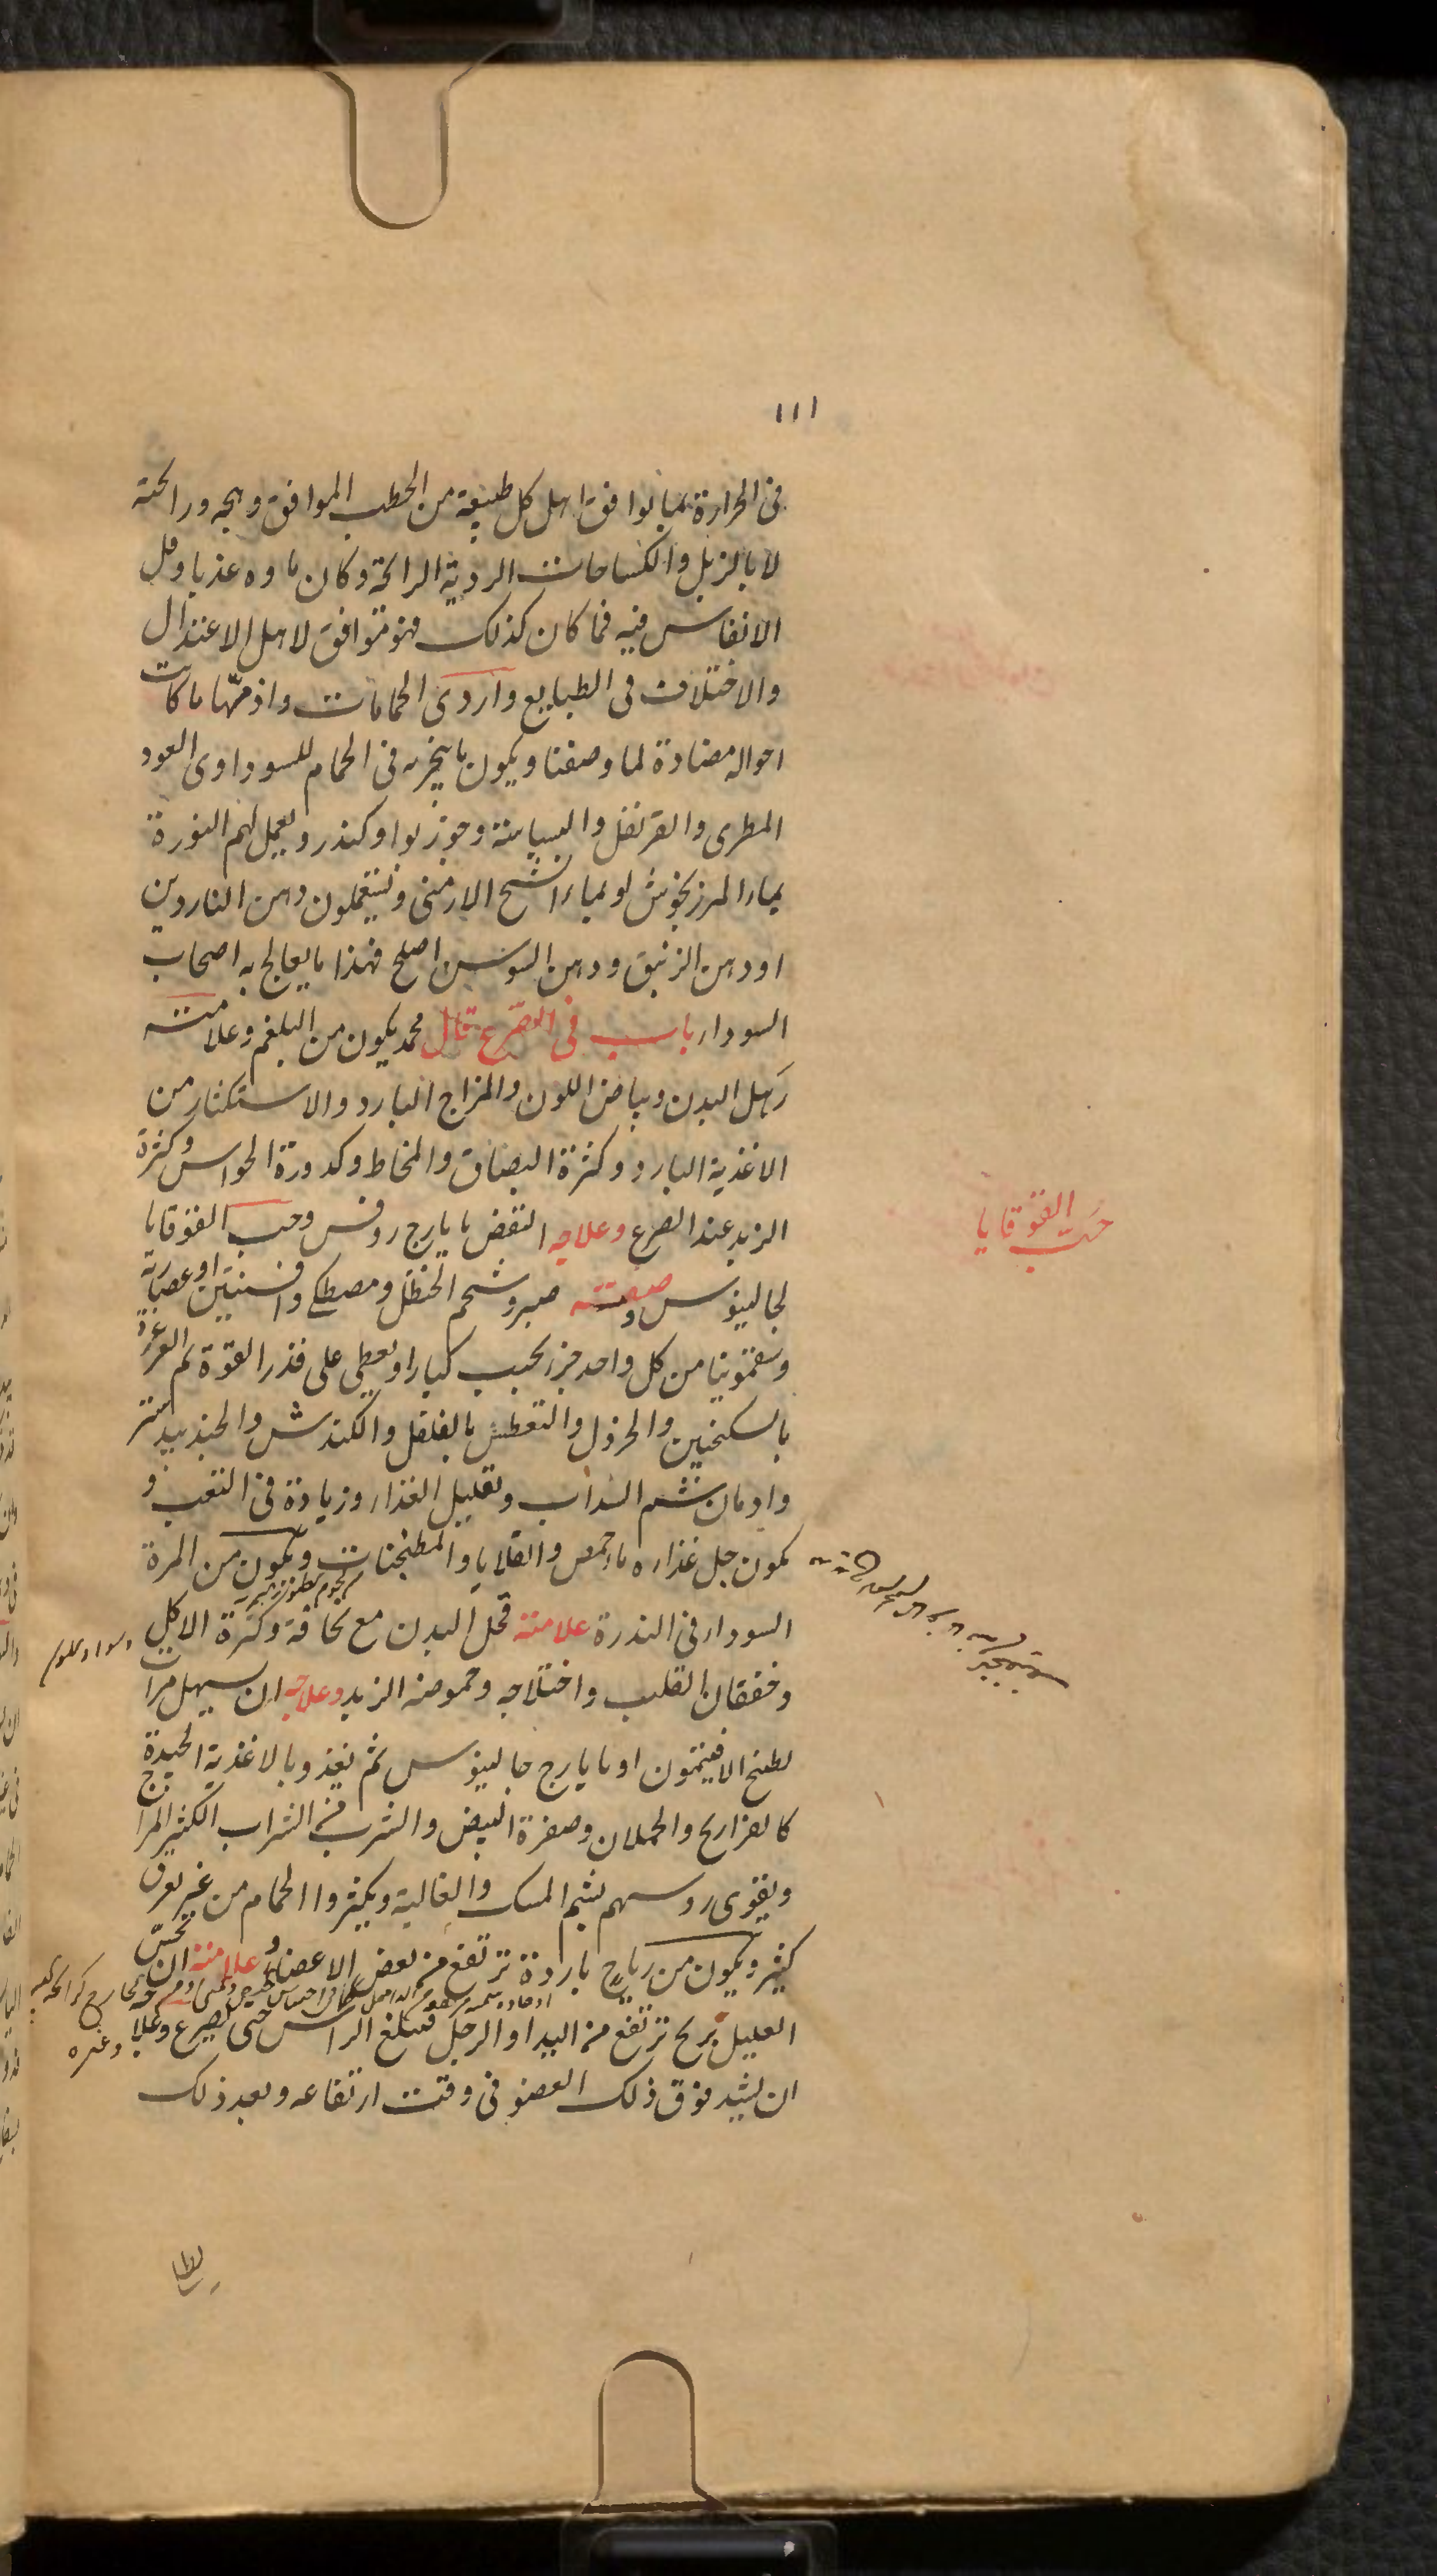 ١١١
فى الحرارة بما يوافق اهل كل طبيعة من الحطب الموافق وهجه ورائحته
لا بالزبل والكساحات الردية الرائحة وكان ماوه عذبا وقل
الانفاس فيه فما كان كذلك فهو متوافق لاهل الاعتدال
والاختلاف فى الطبايع واردى الحمامات واذمّها ما كانت
احواله مضادة لما وصفنا ويكون ما يبخر به فى الحمام للسوداوى العود
المطرى والقرنفل والبسباسة وجوزبوا وكندر ويعمل لهم النورة
بماء المرزنجوش او بماء الشيح الارمنى ويستعملون دهن الناردين
او دهن الزنبق ودهن السوسن اصلح فهذا ما يعالج به اصحاب
السوداء باب فى الصرع قال محمد يكون من البلغم وعلامته
رهل البدن وبياض اللون والمزاج البارد والاستكثار من
الاغذية البارد وكثرة البصاق والمخاط وكدورة الحواس وكثرة
الزبد عند الصرع وعلاجه النفض بايارج روفس وحب القوقايا
حب القوقايا
لجالينوس وصفته صبر وشحم الحنظل ومصطكى وافسنتين او عصارته
وسقمونيا من كل واحد جزء يحبب كبارا ويعطى على قدر القوة ثم الغرغرة
بالسكنجبين والخردل والتعطيس بالفلفل والكندش والجندبيدستر
وادمان شم السداب وتقليل الغذاء وزيادة فى التعب و
يكون جل غذاره ماء حمص والقلايا والمطجنات ويكون من المرة
السوداء فى الندرة علامته قحل البدن مع نحافة وكثرة الاكل
وخفقان القلب واختلاجه وحموضة الزبد وعلاجه ان يسهل مرات
بطبخ الافيتمون او بايارج جالينوس ثم يغذو بالاغذية الجيدة
كالفراريج والحملان وصفرة البيض والشرب فى الشراب الكثير المزاج
ويقوى روسهم بشم المسك والغالية ويكثروا الحمام من غير تعرق
كثير ويكون من رياح باردة ترتفع من بعض الاعضاء وعلامته ان يحسّ
العليل بريح ترتفع من اليد او الرجل فتبلغ الراس حتى يصرع وعلاجه
ان يشد فوق ذلك العضو فى وقت ارتفاعه وبعد ذلك